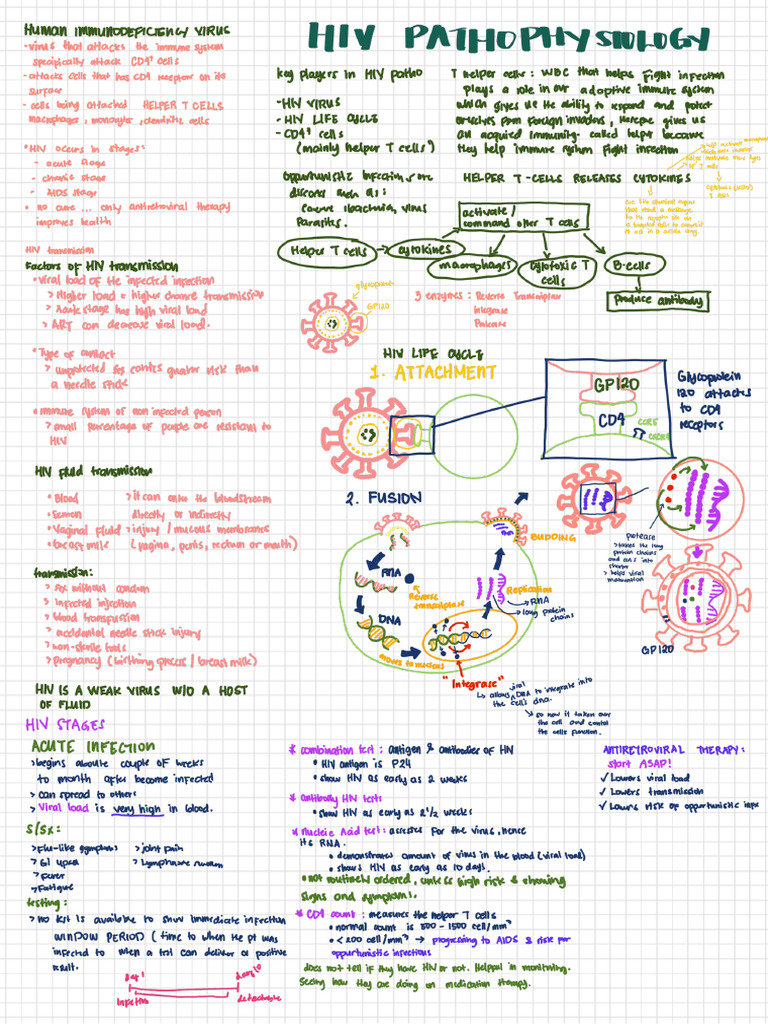 HIV PATHOPHYSIOLOGY
Human IMMUNODEFICIENCY VIRUS
-virus that attacks the immune system
specifically attack CD4⁺ cells
-attacks cells that has CD4 receptor on its
surface
-cells being attacked HELPER T CELLS
macrophages, monocytes, dendritic cells
"HIV occurs in stages"
- acute stage
- chronic stage
- AIDS stage
• no cure ... only antiretroviral therapy
improves health
HIV transmission
Factors of HIV transmission
• Viral load of the infected infection
> Higher load = higher chance transmission
> Acute stage has high viral load
> ART can decrease viral load.
• Type of contact
> unprotected sex carries greater risk than
a needle stick
• immune system of non infected person
> small percentage of people are resistant to
HIV
HIV Fluid transmission
• Blood > it can enter the bloodstream
• Semen directly or indirectly
• Vaginal Fluid > injury / mucous membranes
• Breast milk (vagina, penis, rectum or mouth)
transmission:
> Sex without condom
> infected injection
> blood transfusion
> accidental needle stick injury
> non-sterile tools
> pregnancy (birthing process / breast milk)
HIV IS A WEAK VIRUS W/O A HOST
OF FLUID
key players in HIV patho
-HIV VIRUS
- HIV LIFE CYCLE
- CD4⁺ cells
(mainly helper T cells)
Opportunistic infections are
diseases such as:
Parasites.
T helper cells: WBC that helps fight infection
plays a role in our adoptive immune system
which gives us the ability to respond and protect
ourselves from foreign invaders, therefore gives us
an acquired immunity. called helper because
they help immune system fight infection
HELPER T-CELLS RELEASES CYTOKINES
activate/
command other T cells
Helper T cells
cytokines
macrophages
cytotoxic T
cells
B-cells
produce antibody
3 enzymes: Reverse Transcriptase
integrase
Protease
glycoprotein
GP120
HIV LIFE CYCLE
1. ATTACHMENT
GP120
CD4
CCR5
CXCR4
Glycoprotein
120 attaches
to CD4
receptors
2. FUSION
RNA
Reverse
transcriptase
DNA
moves to nucleus
"Integrase"
↳ allows viral DNA to integrate into
the cell's dna.
↳ so now it taken over
the cell and control
the cells function.
Replication
→ RNA
→ long protein
chains
BUDDING
protease
> takes the long
protein chains
and cuts into
shorter
> helps viral
maturation
GP120
HIV STAGES
ACUTE INFECTION
> begins aboute couple of weeks
to month after become infected
> can spread to others
> Viral load is very high in blood.
S/Sx:
> Flu-like symptoms > joint pain
> GI upset > Lymphnode swollen
> Fever
> Fatigue
testing:
> no test is available to show immediate infection
WINDOW PERIOD (time to when the pt was
infected to when a test can deliver a positive
result.
day 1 day 10
infection detectable
* combination test: antigen & antibodies of HIV
• HIV antigen is P24
• show HIV as early as 2 weeks
* antibody HIV tests
• show HIV as early as 2 1/2 weeks
* nucleic Acid test: assesses for the virus, hence
its RNA.
• demonstrates amount of virus in the blood (viral load)
• shows HIV as early as 10 days.
• not routinely ordered, unless high risk & showing
signs and symptoms.
* CD4 count: measures the helper T cells
• normal count is 500 - 1500 cell/mm³
• < 200 cell/mm³ → progressing to AIDS & risk for
opportunistic infections
does not tell if they have HIV or not. Helpful in monitoring.
Seeing how they are doing on medication therapy.
ANTIRETROVIRAL THERAPY:
start ASAP!
✓ Lowers viral load
✓ Lowers transmission
✓ Lowers risk of opportunistic infe